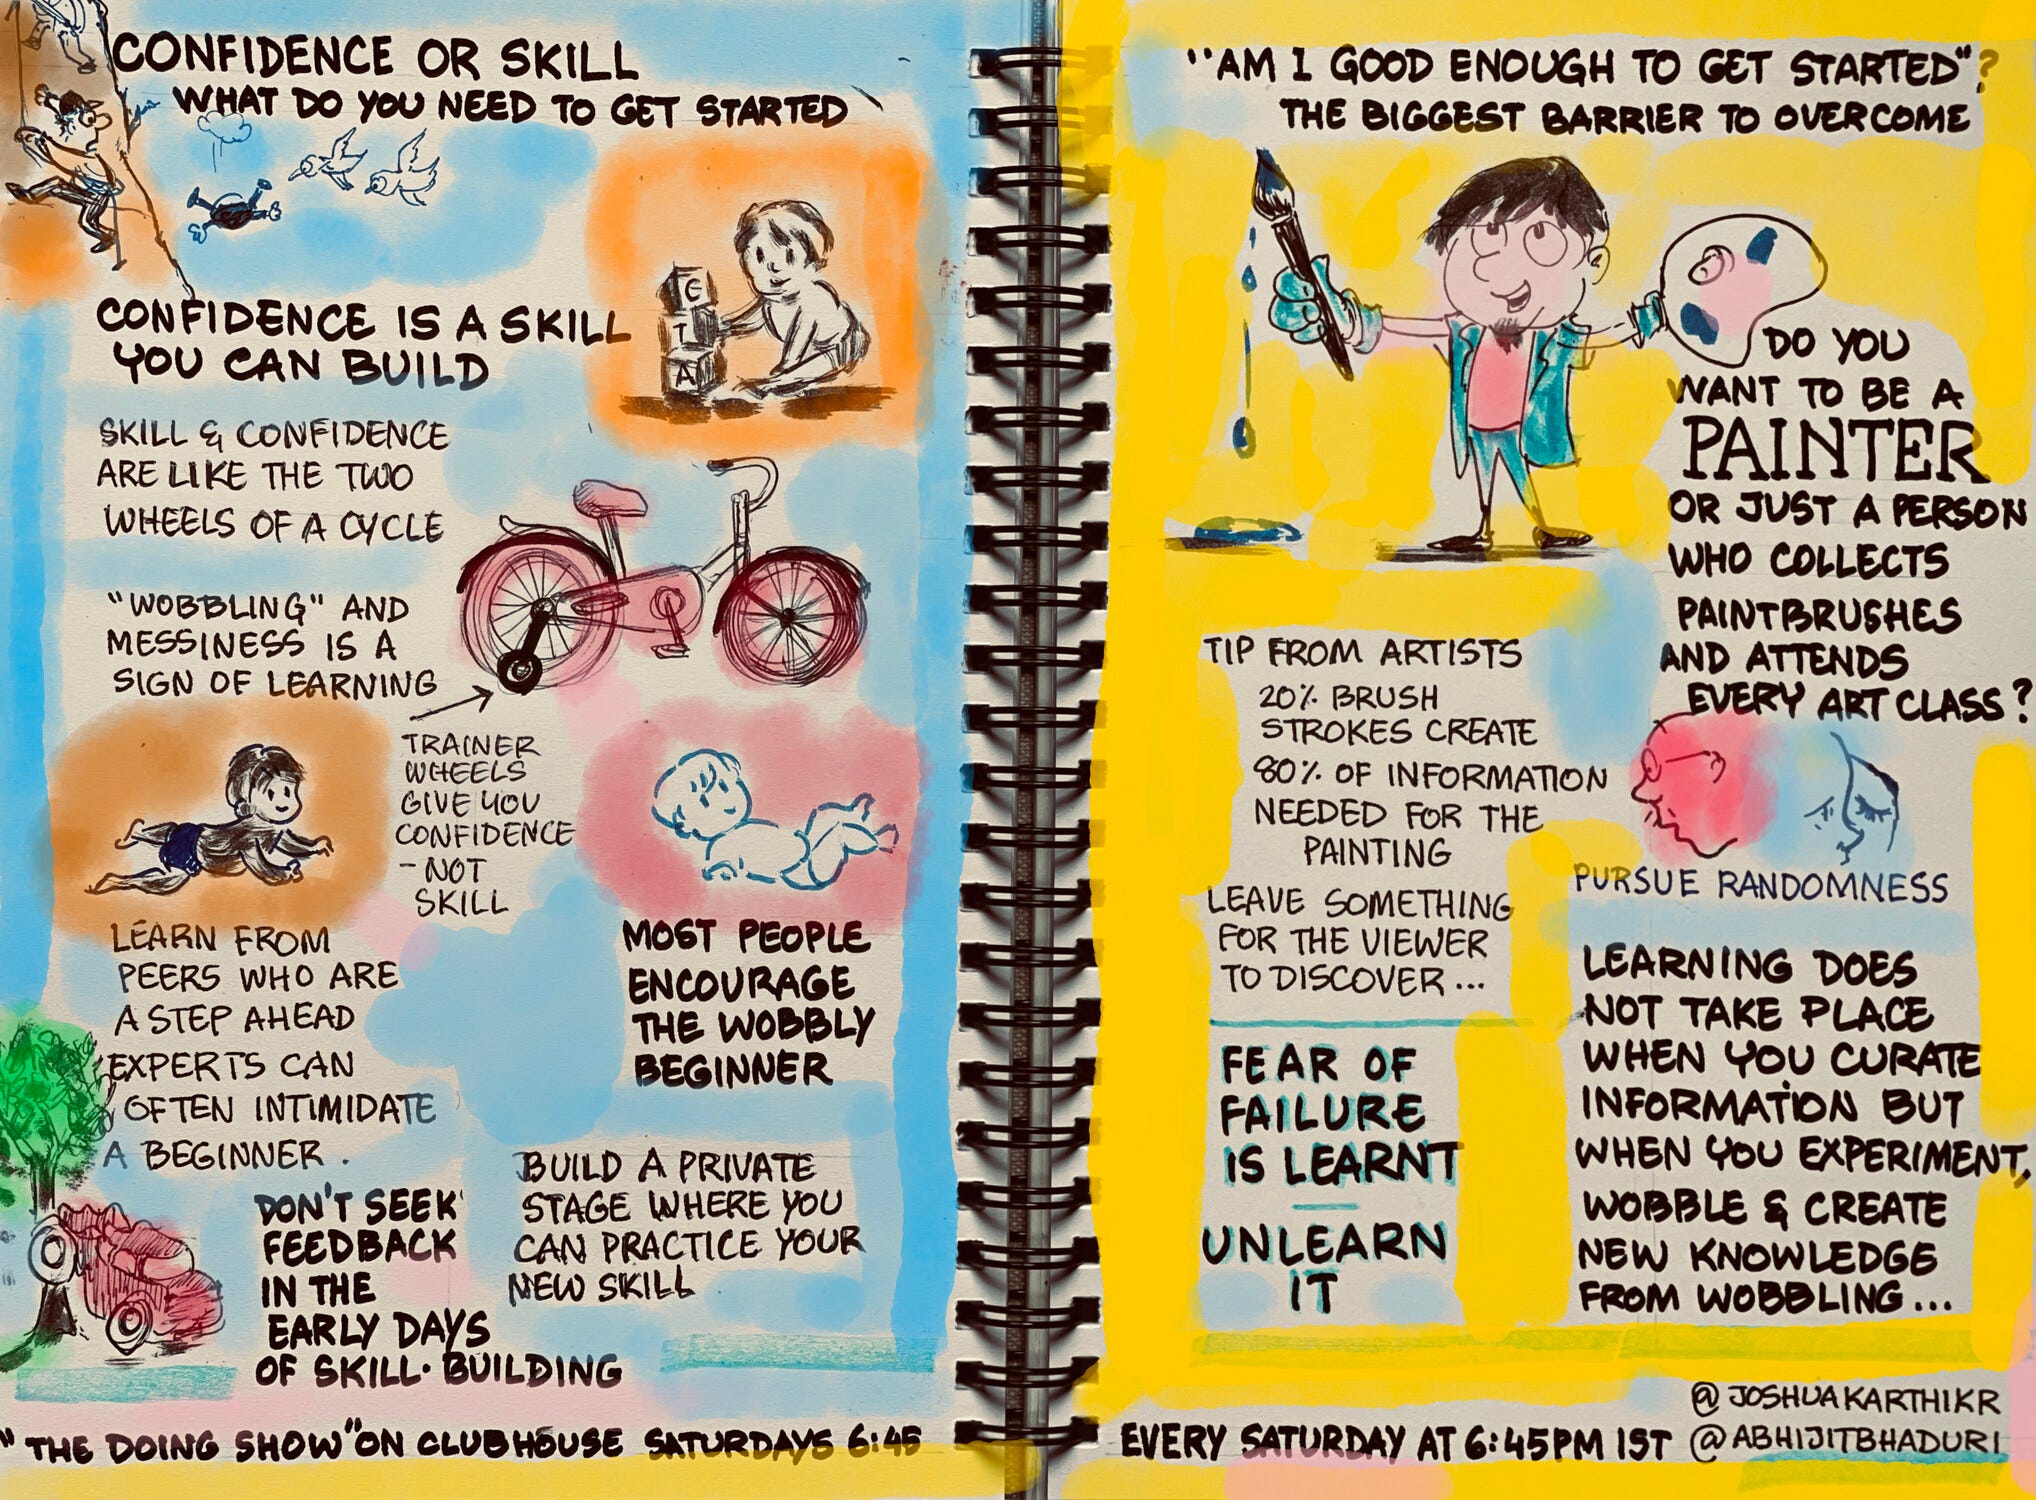 CONFIDENCE OR SKILL
WHAT DO YOU NEED TO GET STARTED
CONFIDENCE IS A SKILL
YOU CAN BUILD
C
T
A
SKILL & CONFIDENCE
ARE LIKE THE TWO
WHEELS OF A CYCLE
"WOBBLING" AND
MESSINESS IS A
SIGN OF LEARNING
TRAINER
WHEELS
GIVE YOU
CONFIDENCE
- NOT
SKILL
LEARN FROM
PEERS WHO ARE
A STEP AHEAD
EXPERTS CAN
OFTEN INTIMIDATE
A BEGINNER.
MOST PEOPLE
ENCOURAGE
THE WOBBLY
BEGINNER
DON'T SEEK
FEEDBACK
IN THE
EARLY DAYS
OF SKILL-BUILDING
BUILD A PRIVATE
STAGE WHERE YOU
CAN PRACTICE YOUR
NEW SKILL
"THE DOING SHOW" ON CLUBHOUSE SATURDAYS 6:45
"AM I GOOD ENOUGH TO GET STARTED"?
THE BIGGEST BARRIER TO OVERCOME
DO YOU
WANT TO BE A
PAINTER
OR JUST A PERSON
WHO COLLECTS
PAINTBRUSHES
AND ATTENDS
EVERY ART CLASS?
TIP FROM ARTISTS
20% BRUSH
STROKES CREATE
80% OF INFORMATION
NEEDED FOR THE
PAINTING
LEAVE SOMETHING
FOR THE VIEWER
TO DISCOVER...
PURSUE RANDOMNESS
FEAR OF
FAILURE
IS LEARNT
—
UNLEARN
IT
LEARNING DOES
NOT TAKE PLACE
WHEN YOU CURATE
INFORMATION BUT
WHEN YOU EXPERIMENT,
WOBBLE & CREATE
NEW KNOWLEDGE
FROM WOBBLING...
@JOSHUAKARTHIKR
EVERY SATURDAY AT 6:45PM IST @ABHIJITBHADURI